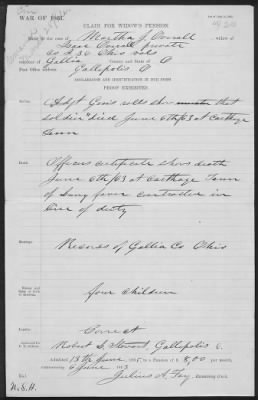 WAR OF 1861.
CLAIM FOR WIDOW'S PENSION
in the case of Martha J. Overall widow of
Isaac Overall private
Co A 36 Ohio vols
resident of Gallia County and State of O
Post Office address Gallipolis O
DECLARATION AND IDENTIFICATION IN DUE FORM
PROOF EXHIBITED
Adjt Gen's rolls show that
soldier died June 6th/63 at Carthage
Tenn
Officers certificate shows death
June 6th/63 at Carthage Tenn
of lung fever contracted in
line of duty
Marriage
Records of Gallia Co Ohio
four children
Loyalty
Correct
Robert S. Stewart, Gallipolis O.
Admitted 13th June 186 to a Pension of $ 8,00 per month,
commencing 6 June 1863
Julius A. Fay, Examining Clerk.